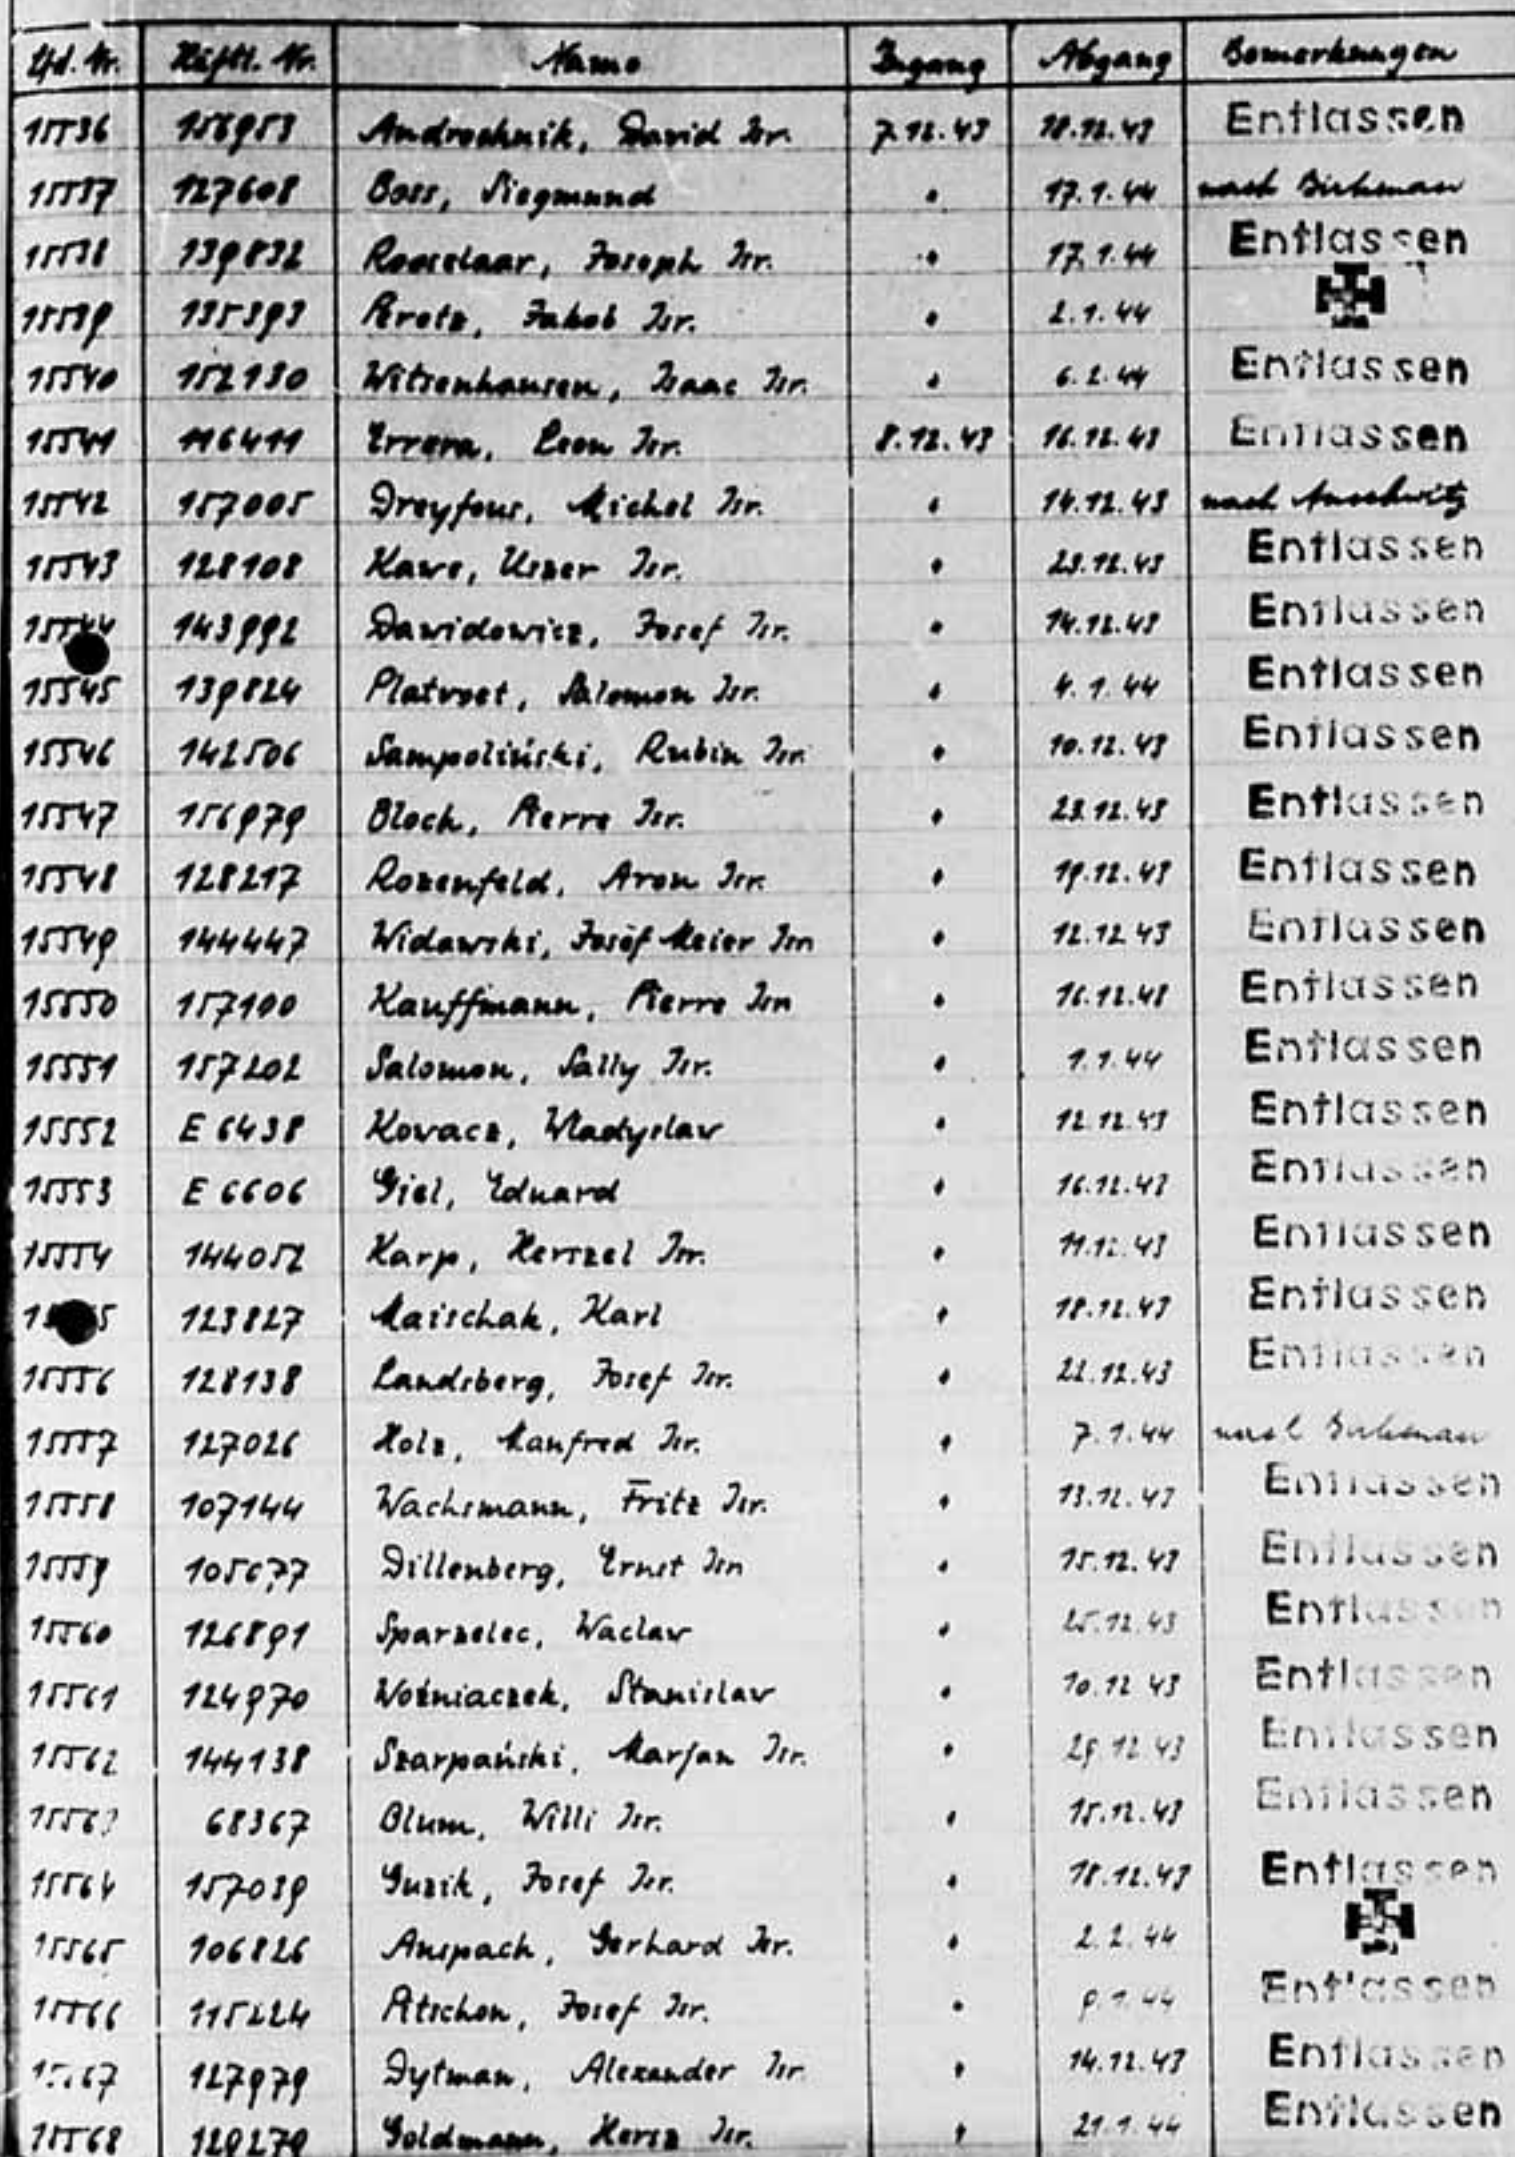 Lfd. Nr. Häftl. Nr. Name Zugang Abgang Bemerkungen
15536 156953 Androchnik, David Isr. 7.12.43 18.12.43 Entlassen
15537 127608 Boss, Siegmund " 17.1.44 nach Birkenau
15538 139832 Rooselaar, Joseph Isr. " 17.1.44 Entlassen
15539 135393 Peretz, Jakob Isr. " 2.1.44
15540 152130 Witsenhausen, Isaac Isr. " 6.2.44 Entlassen
15541 116411 Errera, Leon Isr. 8.12.43 16.12.43 Entlassen
15542 157005 Dreyfous, Michel Isr. " 14.12.43 nach Auschwitz
15543 128108 Kawe, Uszer Isr. " 23.12.43 Entlassen
15544 143992 Dawidowicz, Josef Isr. " 14.12.43 Entlassen
15545 139824 Platvoet, Salomon Isr. " 4.1.44 Entlassen
15546 142506 Sampoliński, Rubin Isr. " 10.12.43 Entlassen
15547 156979 Bloch, Pierre Isr. " 23.12.43 Entlassen
15548 128217 Rozenfeld, Aron Isr. " 19.12.43 Entlassen
15549 144447 Widawski, Josef Meier Isr. " 12.12.43 Entlassen
15550 157100 Kauffmann, Pierre Isr. " 16.12.43 Entlassen
15551 157202 Salomon, Sally Isr. " 1.1.44 Entlassen
15552 E 6438 Kovacz, Wladyslaw " 12.12.43 Entlassen
15553 E 6606 Giel, Eduard " 16.12.43 Entlassen
15554 144052 Karp, Herszel Isr. " 11.12.43 Entlassen
123827 Maischak, Karl " 18.12.43 Entlassen
15556 128138 Landsberg, Josef Isr. " 22.12.43 Entlassen
15557 127026 Holz, Manfred Isr. " 7.1.44 nach Birkenau
15558 107144 Wachsmann, Fritz Isr. " 13.12.43 Entlassen
15559 105677 Dillenberg, Ernst Isr. " 15.12.43 Entlassen
15560 126891 Sparzelec, Waclaw " 25.12.43 Entlassen
15561 124970 Woźniaczek, Stanislaw " 10.12.43 Entlassen
15562 144138 Szarpański, Marjan Isr. " 29.12.43 Entlassen
15563 68367 Blum, Willi Isr. " 15.12.43 Entlassen
15564 157039 Guzik, Josef Isr. " 18.12.43 Entlassen
15565 106826 Anspach, Gerhard Isr. " 2.2.44
15566 115224 Atschon, Josef Isr. " 9.1.44 Entlassen
15567 127979 Dytman, Alexander Isr. " 14.12.43 Entlassen
15568 129279 Goldmann, Hersz Isr. " 21.1.44 Entlassen